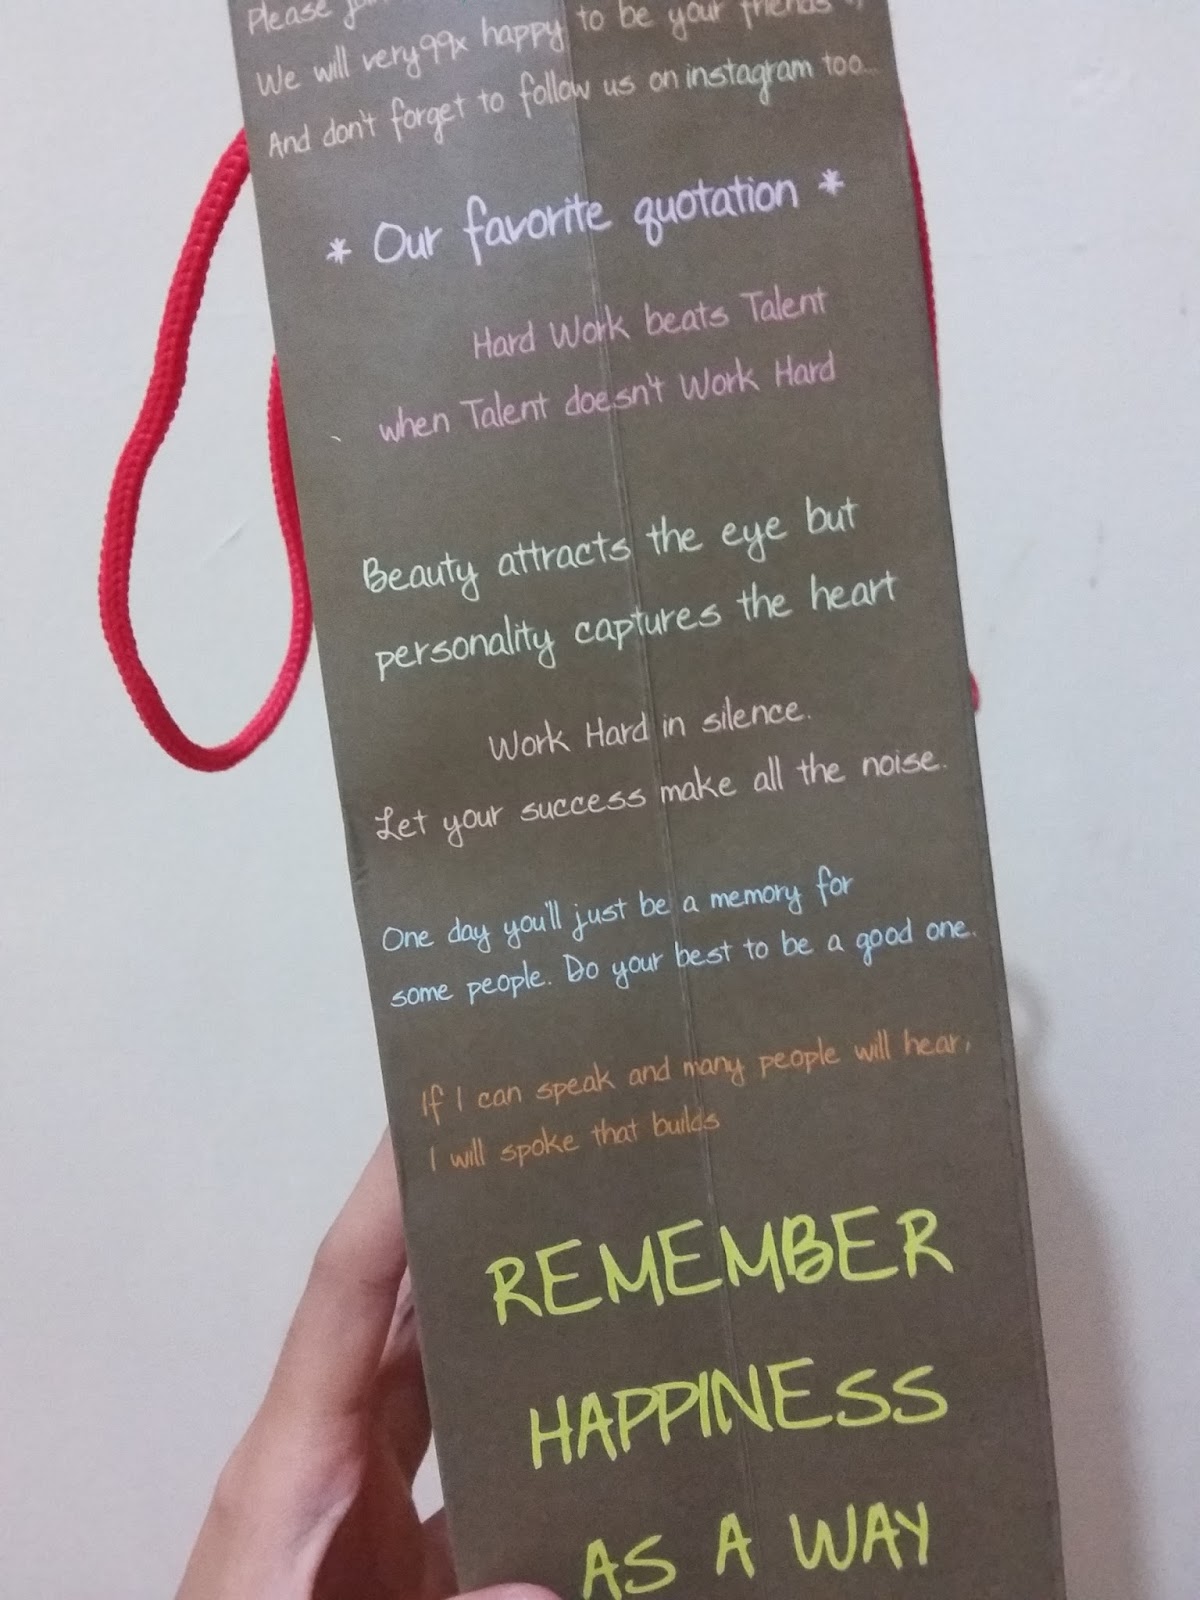 Please
We will very99x happy to be your friends
And don't forget to follow us on instagram too...
* Our favorite quotation *
Hard Work beats Talent
when Talent doesn't Work Hard
Beauty attracts the eye but
personality captures the heart
Work Hard in silence.
Let your success make all the noise.
One day you'll just be a memory for
some people. Do your best to be a good one.
If I can speak and many people will hear,
I will spoke that builds
REMEMBER
HAPPINESS
AS A WAY